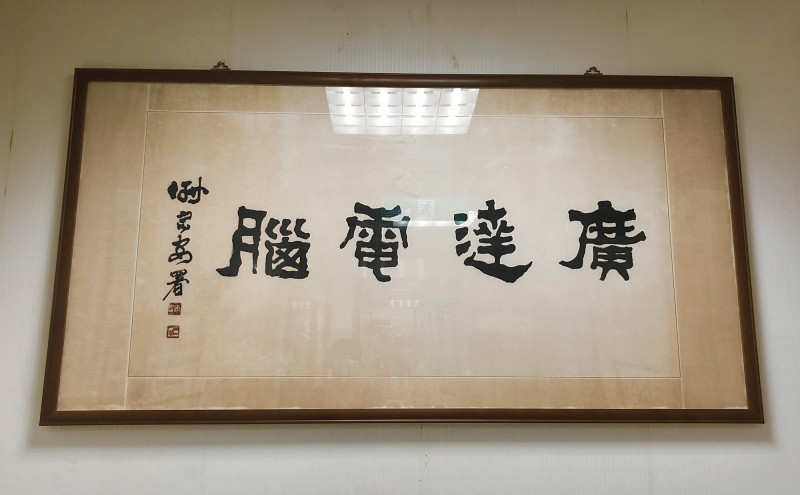 廣達電腦